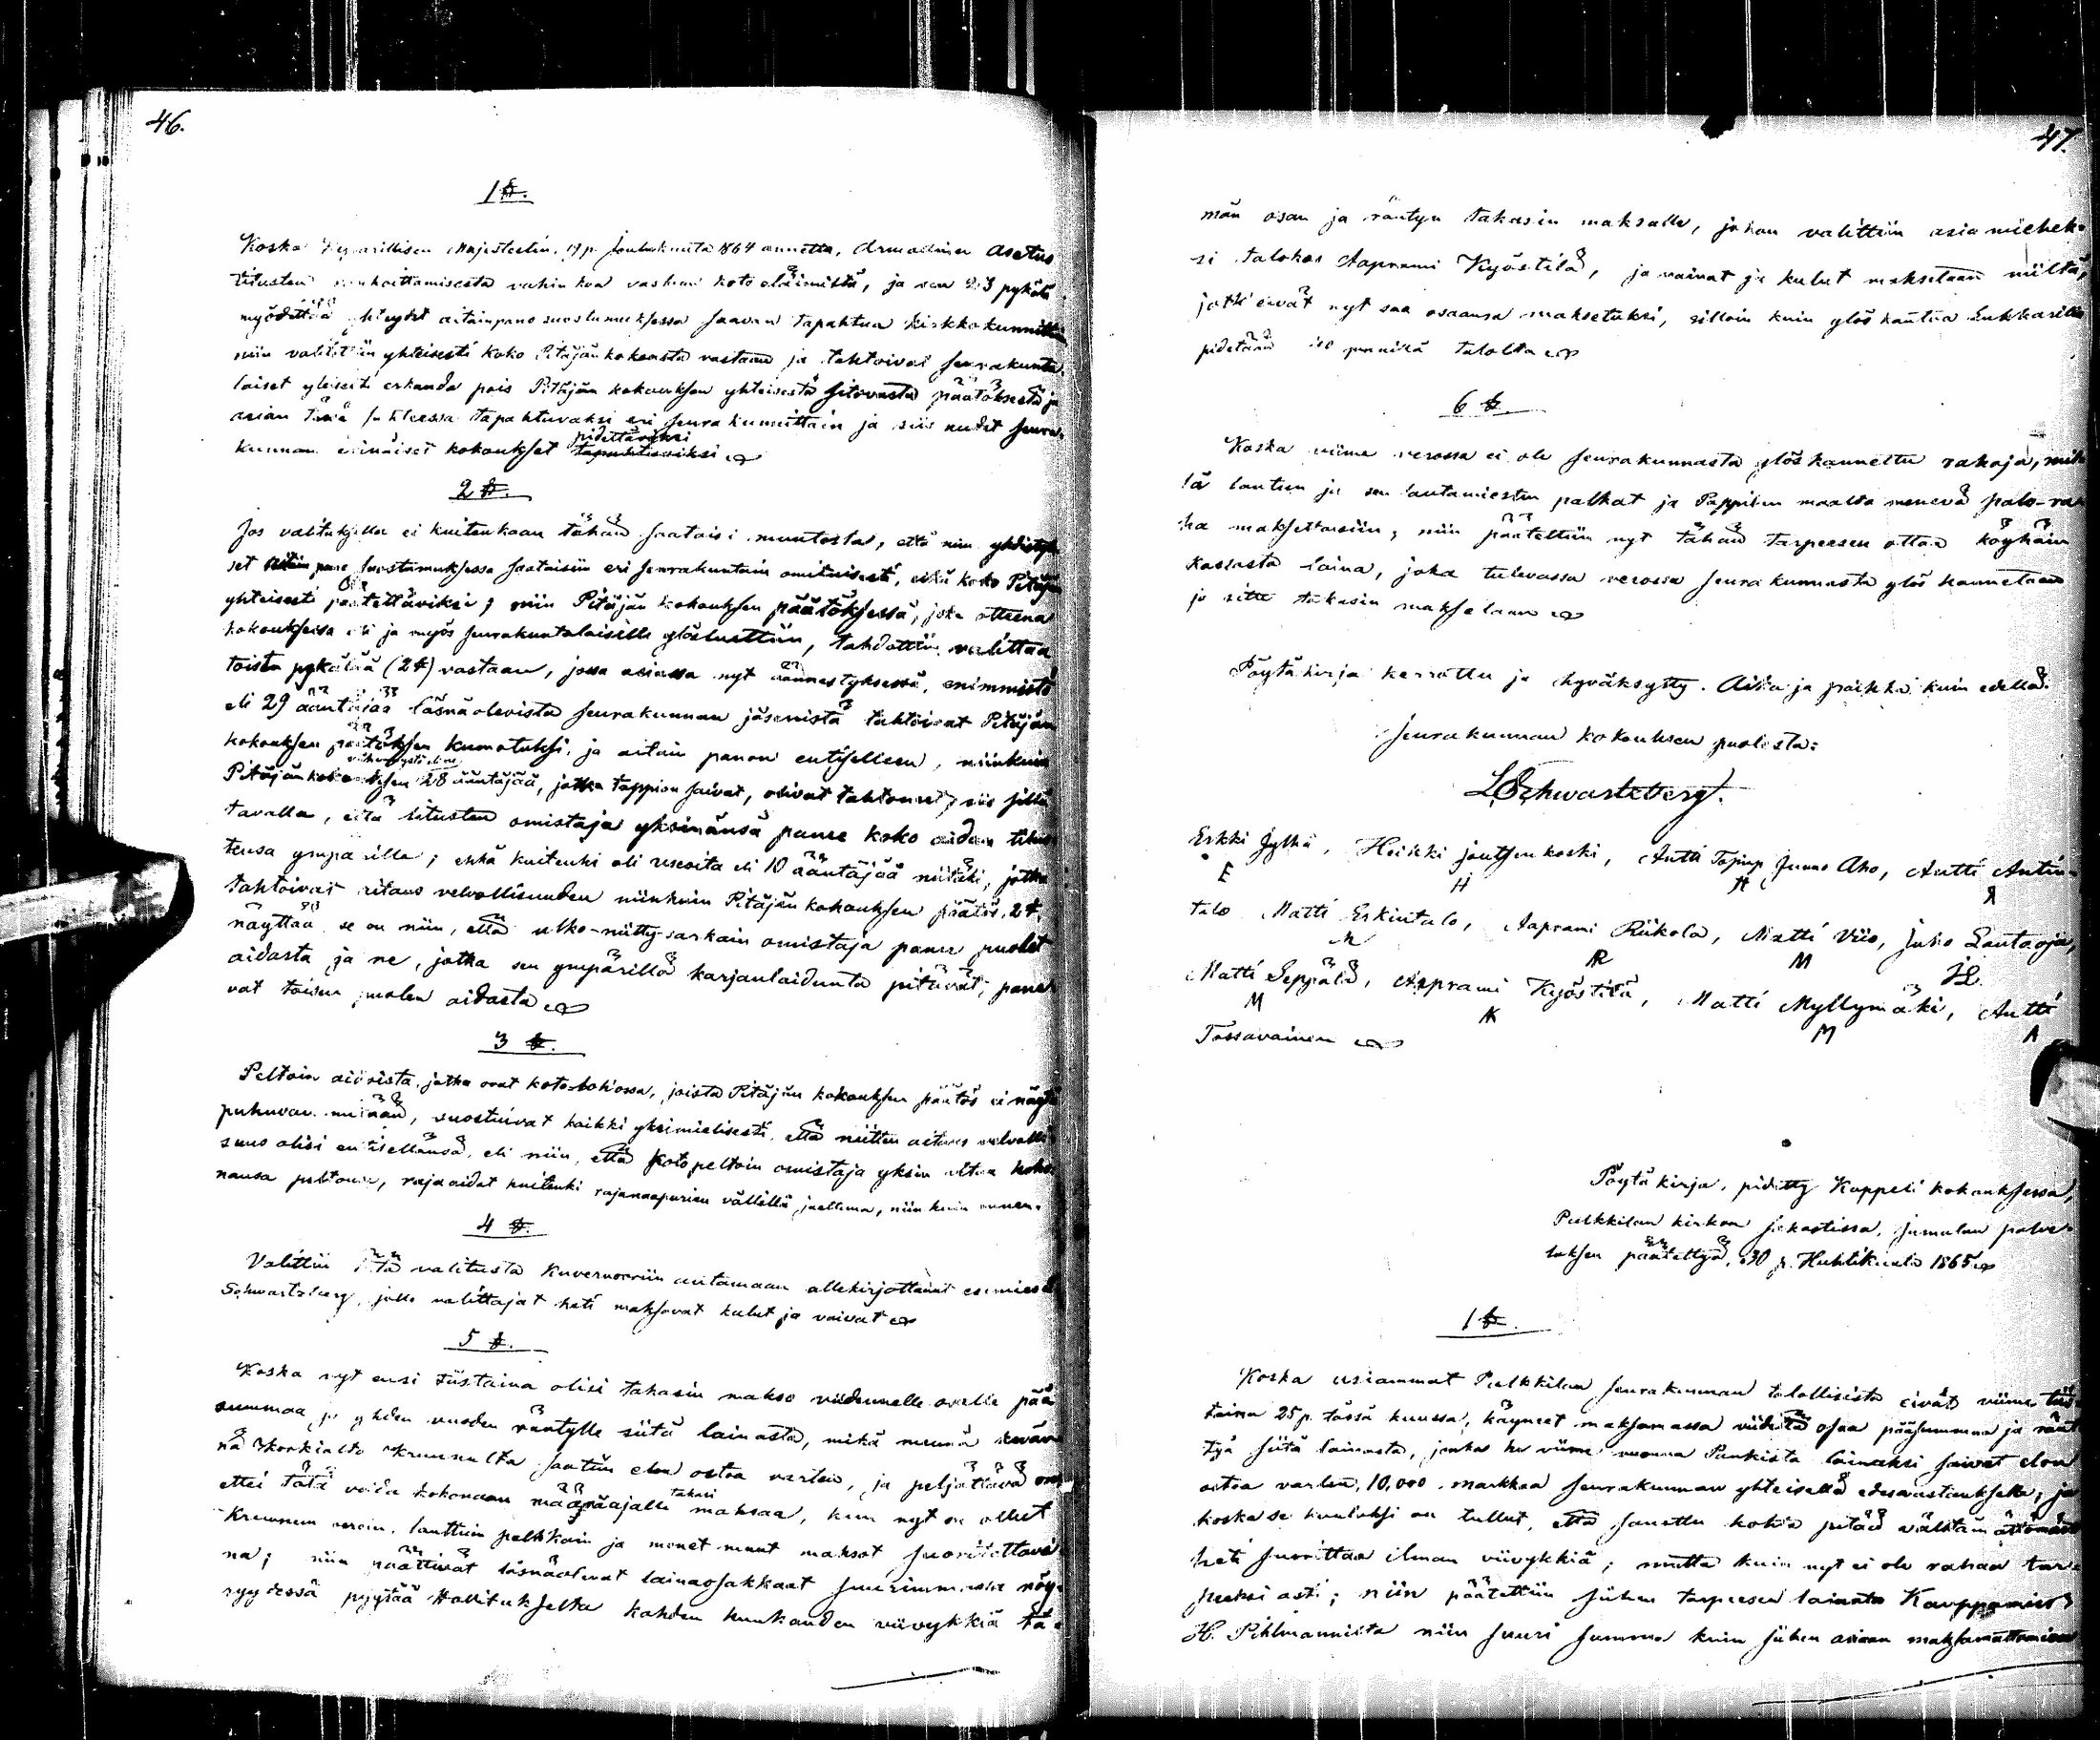 46.
1 §.
Koska Keisarillisen Majesteetin, 19 p. Joulukuuta 1864 annettu, Armollinen Asetus
tilusten rauhoittamisesta vahinkoa vastaan koto eläimiltä, ja sen 23 pykälä
myödittää yhteyttä aitainpano suostumuksessa saavan tapahtua kirkkokunnittain
niin valitettiin yhteisesti koko Pitäjänkokousta vastaan ja tahtoivat seurakunta-
laiset yleisesti erkanda pois Pitäjän kokouksen yhteisestä sitovasta päätöksestä ja
asian tässä suhteessa tapahtuvaksi eri seurakunnittain ja siis nudet seura-
kunnan erinäiset kokoukset tapahtuviksi
pidettäväksi
2 §.
Jos valituksella ei kuitenkaan tähän saataisi muutosta, että niin yhdistyk-
set aitain pano suostumuksessa saataisiin eri seurakuntain omituisesti, eikä koko Pitäjän
yhteisesti päätettäviksi; niin Pitäjän kokouksen päätöksessä, joka otteena
kokouksessa oli ja myös seurakuntalaisille ylösluettiin, tahdottiin valittaa
toista pykälää (2 §) vastaan, jossa asiassa nyt äännestyksessä, enimmistö
eli 29 ääntäjää läsnäolevista seurakunnan jäsenistä tahtoivat Pitäjän
kokouksen päätöksen kumotuksi, ja aitain panon entiselleen, niinkuin
Pitäjänkokouksen 28 ääntäjää, jotka tappion saivat, olivat tahtoneet, siis sillä
tavalla, että tilusten omistaja yksinänsä panee koko aidan tilus-
tensa ympärille; ehkä kuitenki oli useoita eli 10 ääntäjää niitäki, jotka
tahtoivat aitaus velvollisuuden niinkuin Pitäjän kokouksen päätös, 2 §.
näyttää, se on niin, että ulko-niitty-sarkain omistaja panee puolet
aidasta ja ne, jotka sen ympärillä karjanlaidunta pitävät, pane-
vat toisen puolen aidasta
3 §.
Peltoin aidoista, jotka ovat koto-lohossa, joista Pitäjän kokouksen päätös ei näytä
puhuvan mitään, suostuivat kaikki yksimielisesti, että niitten aitaus velvolli-
suus olisi entisellänsä, eli niin, että koto peltoin omistaja yksin aitaa koko-
nansa peltonsa, rajaaidat kuitenki rajanaapurien välillä jaettuna, niin kuin ennen.
4 §.
Valittiin tätä valitusta Kuvernööriin antamaan allekirjottanut esimies
Schwartzberg, jolle valittajat heti maksavat kulut ja vaivat
5 §.
Koska nyt ensi tiistaina olisi takasin makso viidennelle osalle pää
summaa ja yhden vuoden räntylle siitä lainasta, mikä mennä kevään
nä Korkialta Kruunulta saatiin elon ostoa varten, ja peljättävä on
ettei tätä voida kokonaan määräajalla takasi maksaa, kun nyt on ollut
Kruunun veroin, lauttuin palkkain ja monet muut maksot suoritettava-
na; niin päättivät läsnäolevat lainaosakkaat suurimmassa nöy-
ryydessä pyytää Hallitukselta kahden kuukauden viivykkiä tä-
47.
män osan ja räntyn takasin maksulle, johon valittiin asia miehek-
si talokas Aaprami Kyöstilä, ja vaivat ja kulut maksetaan niiltä,
jotk' eivät nyt saa osaansa maksetuksi, silloin kuin ylös kantoa Lukkarille
pidetään penniä talolta
6 §.
Koska viime verossa ei ole seurakunnasta ylöskannettu rahoja, mil-
lä lautun ja sen lautamiesten palkat ja Pappilan maalta menevä palo-ra-
ha maksettaisiin; niin päätettiin nyt tähän tarpeesen ottaa köyhäin
kassasta laina, joka tulevassa verossa seurakunnasta ylös kannetaan
ja sitte takasin maksetaan
Pöytäkirja kerrottu ja hyväksytty. Aika ja paikka kuin edellä.
Seurakunnan kokouksen puolesta:
LSchwartzberg.
Erkki Jylhä, Heikki Joutsenkoski, Antti Junno Aho, Antti Antin-
E H A A
talo Matti Erkintalo, Aaprami Riikola, Matti Viio, Juho Lantaoja,
M AR M JL
Matti Seppälä, Aaprami Kyöstilä, Matti Myllymäki, Antti
M AK M A
Tossavainen
Pöytäkirja, pidetty Kappeli kokouksessa,
Pulkkilan kirkon sakastissa, Jumalan palve-
luksen päätettyä, 30 p. Huhtikuuta 1865
1 §.
Koska usiammat Pulkkilan seurakunnan talollisista eivät viime tiis-
taina 25 p. tässä kuussa, käyneet maksamassa viidettä osaa pääsummaa ja rän-
tyä siitä lainasta, jonka he viime vuonna Pankista lainaksi saivat elon
ostoa varten, 10,000 markkaa seurakunnan yhteisellä edesvastauksella; ja
koska se kuuluksi on tullut, että sanottu kohta pitää välttämättömästi
heti suorittaa ilman viivykkiä; mutta kuin nyt ei ole rahaa tar-
peeksi asti; niin päätettiin siihen tarpeesen lainata Kauppamies
H. Pihlmannilta niin suuri summa kuin siihen asiaan maksamattomien